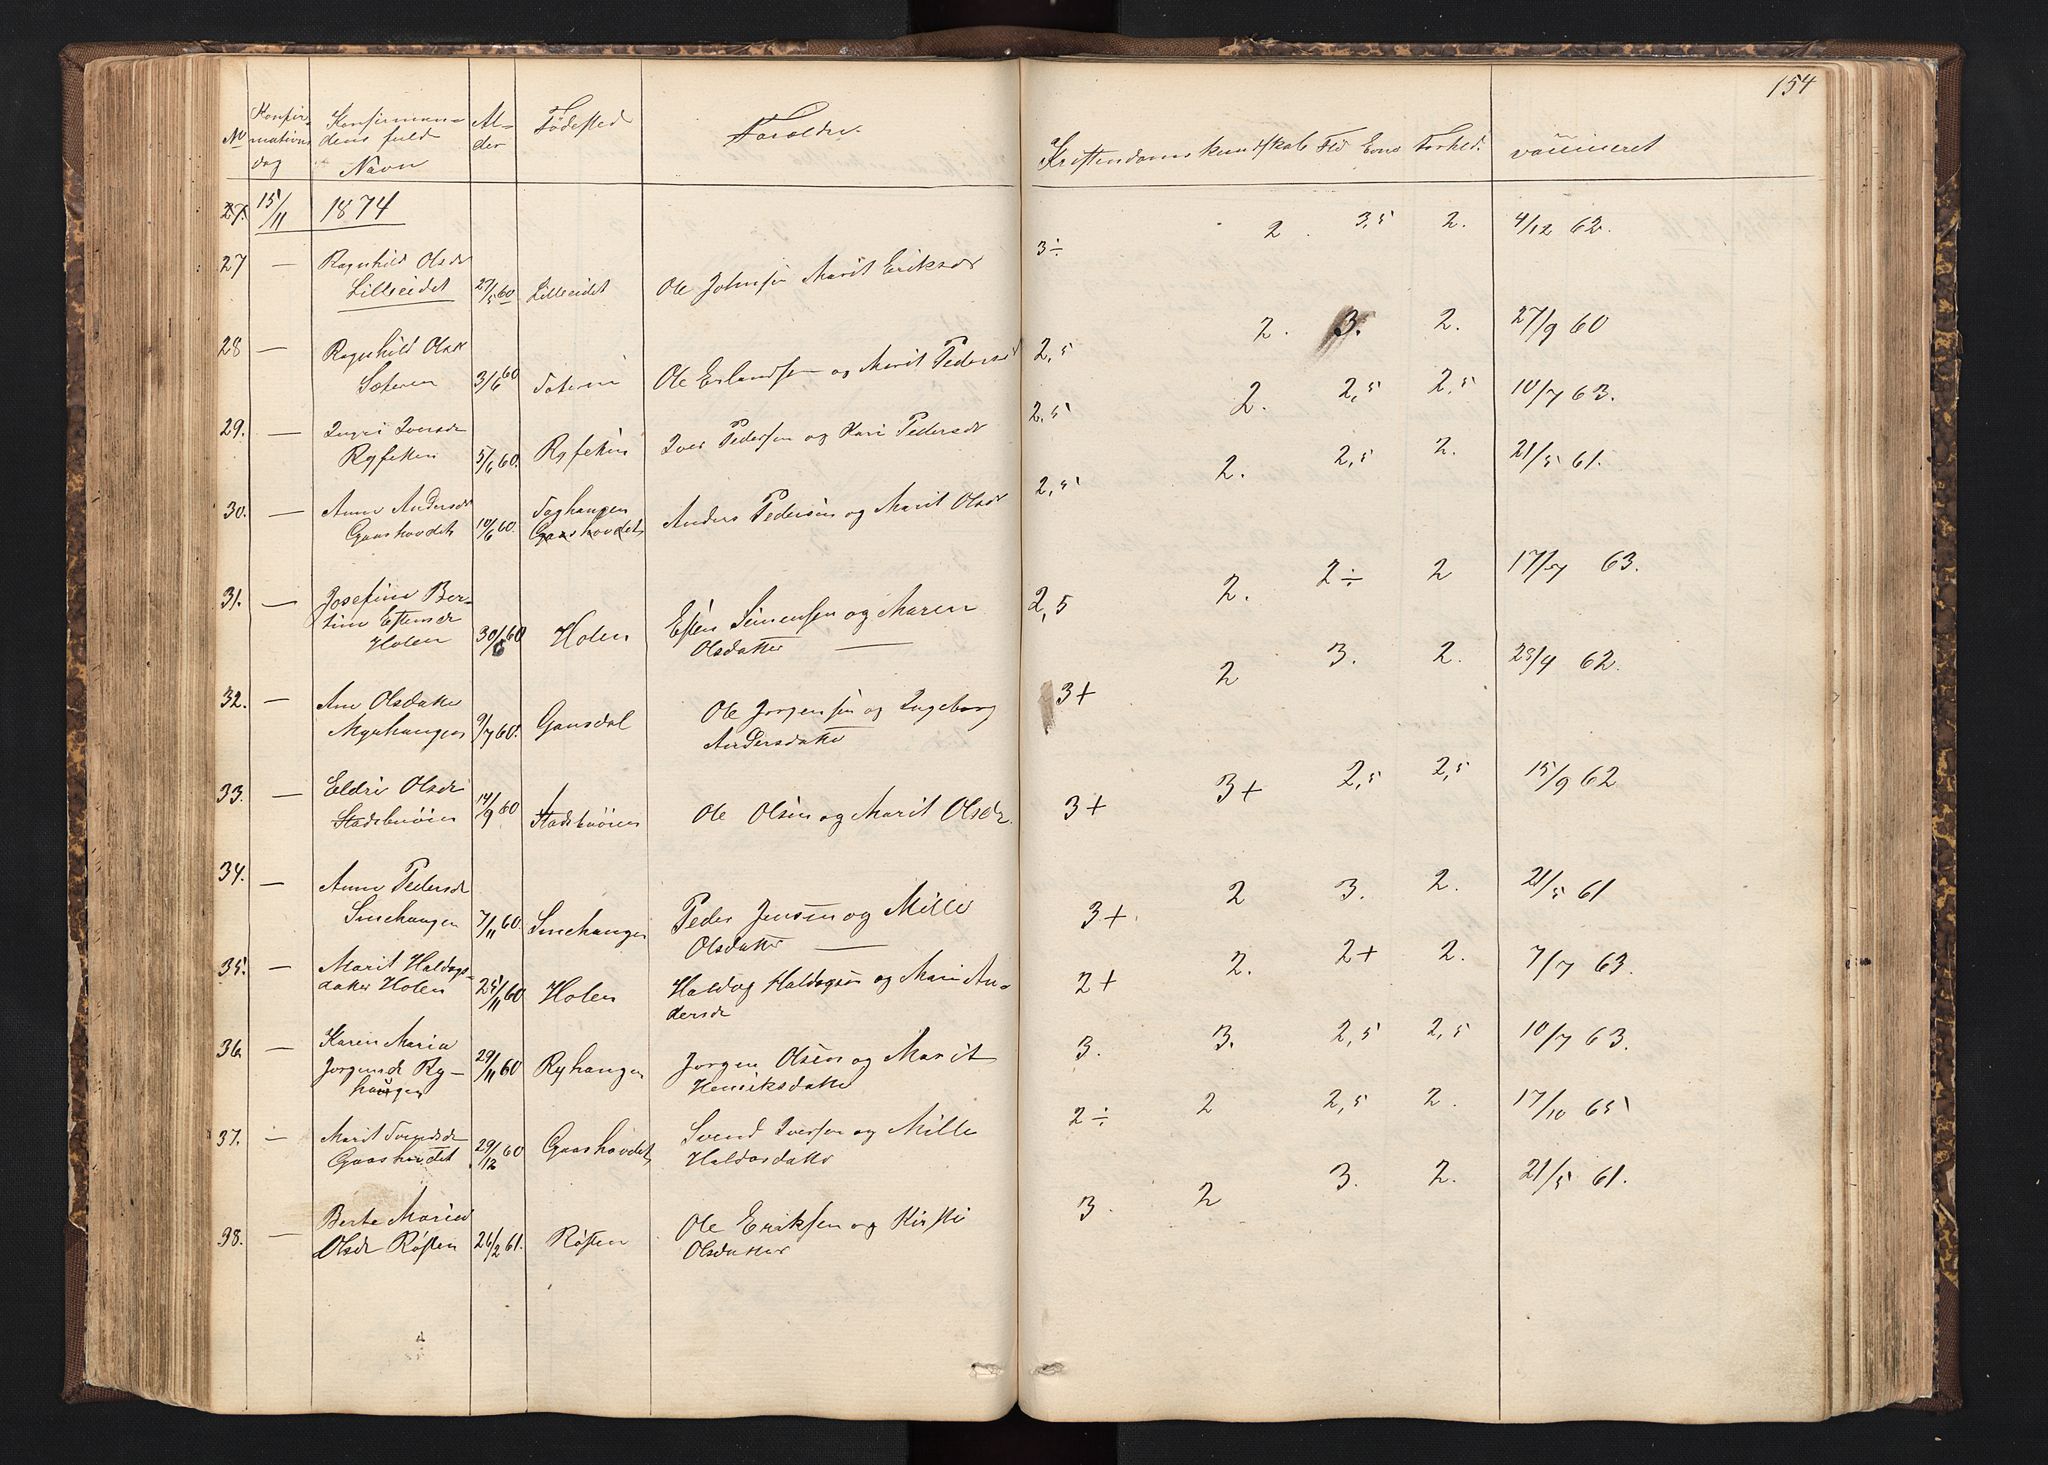 154
No Konfirmations dag
Konfirmandens fuld Navn
Alder
Fødested
Forældre
Kristendomskundskab Flid Evne Forhed. vaccineret
27. 15/11 1874
27 — Ragnhild Olsdr
Lilleeidet 27/5 60 Lilleeidet Ole Johnsen Marit Eriksdr 3÷ 2. 3,5 2. 4/12 62.
28 — Ragnhild Olsdr
Sæteren 3/6 60 Ole Erlandsen og Marit Pedersd 2,5 2. 3. 2. 27/9 60
29. — Ingri Iversdr
Ryfeten 5/6 60. Ryfeten Iver Pedersen og Kari Pedersdr 2,5 2. 2,5 2,5 10/7 63.
30. — Anne Andersdr
Gaashovdet 10/6 60. Foghaugen
Gaashovdet Anders Pedersen og Marit Olsdr 2,5 2. 2,5 2. 21/5 61.
31. — Josefine Ber-
tine Estensdr
Holen 30/6 60 Holen Esten Simensen og Maren
Olsdatter — 2,5 2. 2÷ 2 17/7 63.
32. — Ane Olsdatter
Myrhaugen 9/7 60. Gaasdal Ole Jørgensen og Ingeborg
Andersdatter 3+ 2 3. 2. 23/4 62.
33. — Eldri Olsdr
Stadsbuøien 14/9 60 Stadsbuøien Ole Olsen og Marit Olsdr. 3+ 3+ 2,5 2,5 15/9 62
34. — Anne Pedersdr
Smehaugen 7/11 60. Smehaugen Peder Jensen og Mille
Olsdatter — 3+ 2 3. 2. 21/5 61
35. — Marit Haldogs-
datter Holen 25/11 60 Holen Haldog Haldogsen og Mari An-
dersdr 2+ 2. 2+ 2. 7/7 63.
36. — Karen Maria
Jørgensdr Ry-
haugen 29/11 60 Ryhaugen Jørgen Olsen og Marit
Henriksdatter 3. 3. 2,5 2,5 10/7 63.
37. — Marit Svendsdr
Gaashovdet 29/12 60 Gaashovdet Svend Iversen og Mille
Haldosdatter 2÷ 2 2,5 2. 17/10 65
38. — Berte Maria
Olsdr Røsten 26/2 61. Røsten Ole Eriksen og Kirsti
Olsdatter 3. 2 3. 2. 21/5 61.